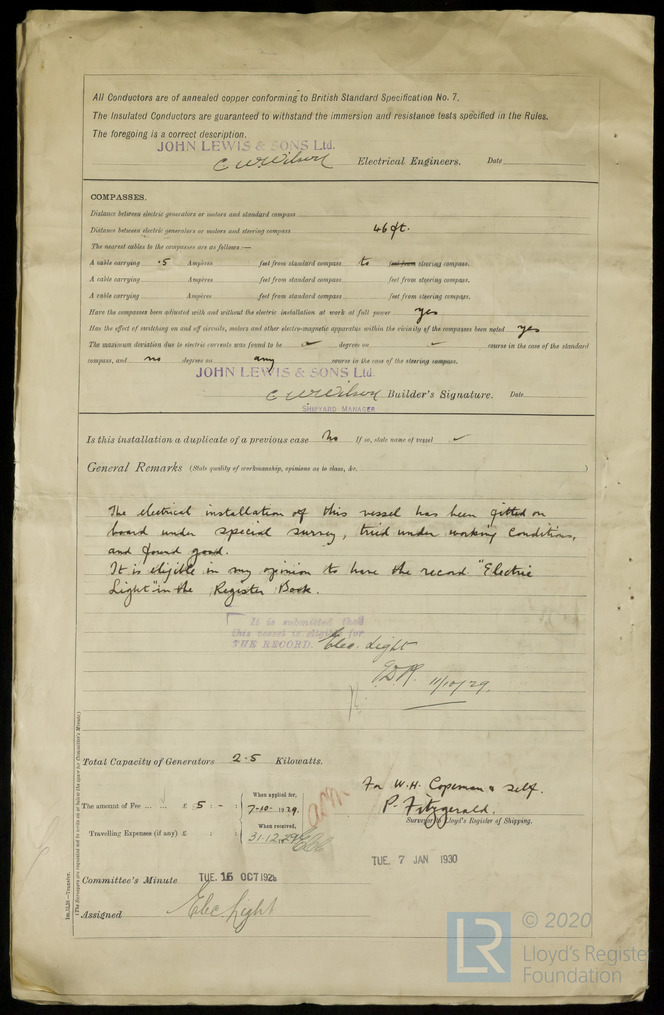 All Conductors are of annealed copper conforming to British Standard Specification No. 7.
The Insulated Conductors are guaranteed to withstand the immersion and resistance tests specified in the Rules.
The foregoing is a correct description.
JOHN LEWIS & SONS Ltd.
C W Wilson Electrical Engineers. Date
COMPASSES.
Distance between electric generators or motors and standard compass
Distance between electric generators or motors and steering compass 46 ft.
The nearest cables to the compasses are as follows:—
A cable carrying .5 Ampères feet from standard compass to feet from steering compass.
A cable carrying Ampères feet from standard compass feet from steering compass.
A cable carrying Ampères feet from standard compass feet from steering compass.
Have the compasses been adjusted with and without the electric installation at work at full power yes
Has the effect of switching on and off circuits, motors and other electro-magnetic apparatus within the vicinity of the compasses been noted yes
The maximum deviation due to electric currents was found to be ✓ degrees on ✓ course in the case of the standard
compass, and no degrees on any course in the case of the steering compass.
JOHN LEWIS & SONS Ltd.
C W Wilson Builder's Signature. Date
SHIPYARD MANAGER
Is this installation a duplicate of a previous case No If so, state name of vessel ✓
General Remarks (State quality of workmanship, opinions as to class, &c. )
The electrical installation of this vessel has been fitted on
board under special survey, tried under working conditions,
and found good.
It is eligible in my opinion to have the record "Electric
Light" in the Register Book.
It is submitted that
this vessel is eligible for
THE RECORD. Elec. Light
11/10/29.
Total Capacity of Generators 2.5 Kilowatts.
The amount of Fee ... ... £ 5 : - :
When applied for,
7-10-1929.
Travelling Expenses (if any) £ : :
When received,
31.12.1929
For W.H. Copeman & self.
P. Fitzgerald.
Surveyor to Lloyd's Register of Shipping.
TUE. 7 JAN 1930
Committee's Minute TUE. 15 OCT 1929
Assigned Elec Light
1m.11.26.—Transfer.
(The Surveyors are requested not to write on or below the space for Committee's Minute.)
LR
© 2020
Lloyd's Register
Foundation